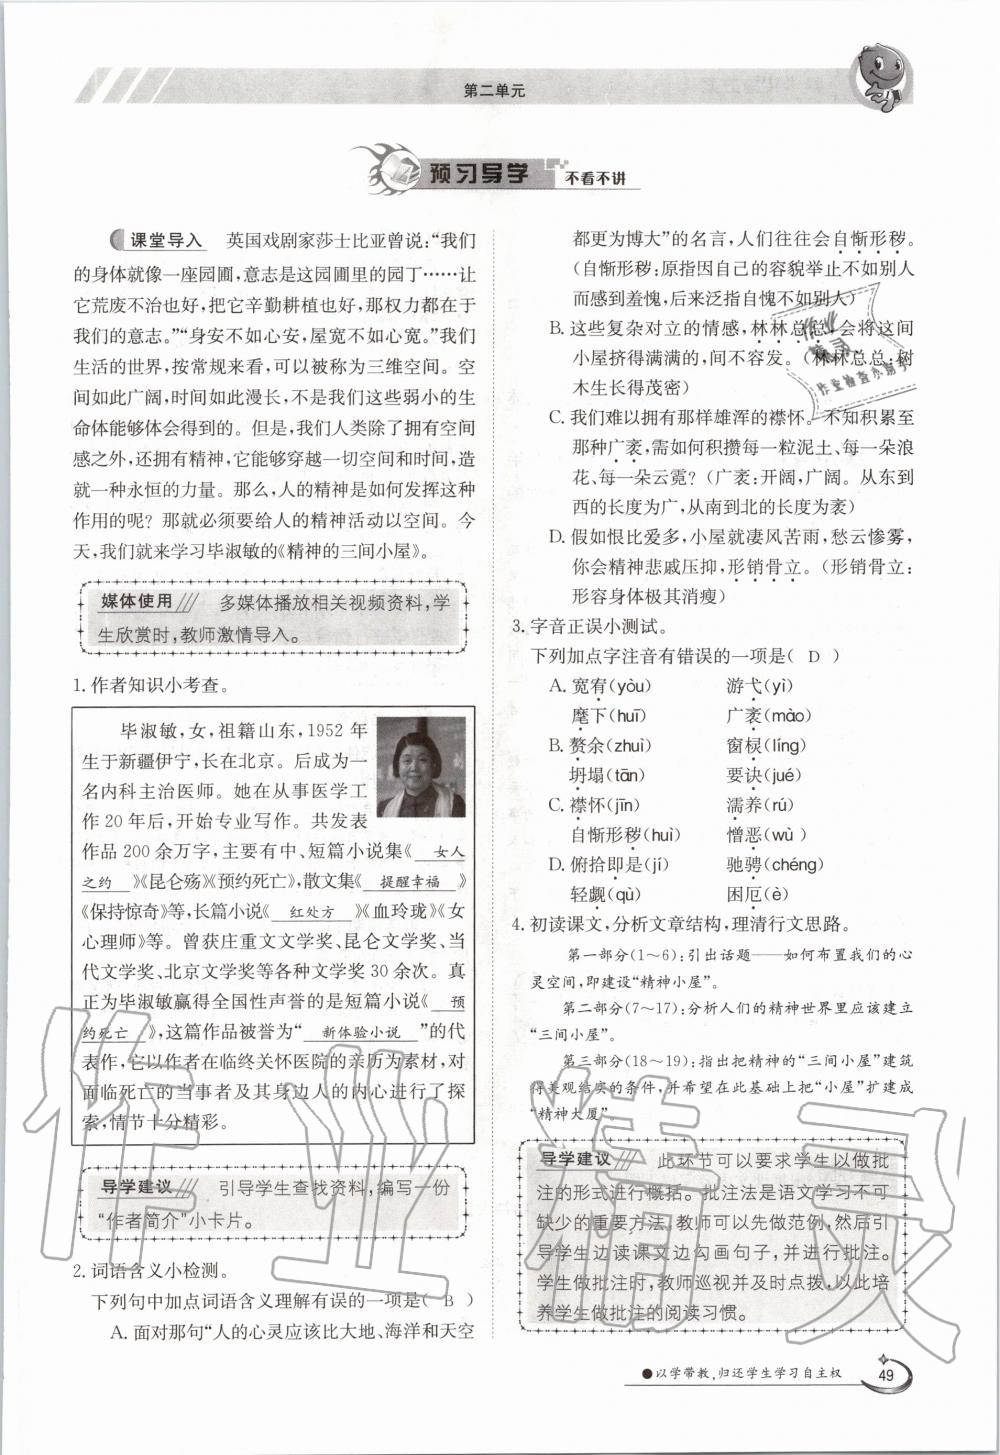 第二单元
预习导学 不看不讲
课堂导入 英国戏剧家莎士比亚曾说:“我们
的身体就像一座园圃,意志是这园圃里的园丁……让
它荒废不治也好,把它辛勤耕植也好,那权力都在于
我们的意志。”“身安不如心安,屋宽不如心宽。”我们
生活的世界,按常规来看,可以被称为三维空间。空
间如此广阔,时间如此漫长,不是我们这些弱小的生
命体能够体会得到的。但是,我们人类除了拥有空间
感之外,还拥有精神,它能够穿越一切空间和时间,造
就一种永恒的力量。那么,人的精神是如何发挥这种
作用的呢?那就必须要给人的精神活动以空间。今
天,我们就来学习毕淑敏的《精神的三间小屋》。
媒体使用 多媒体播放相关视频资料,学
生欣赏时,教师激情导入。
1. 作者知识小考查。
毕淑敏,女,祖籍山东,1952 年
生于新疆伊宁,长在北京。后成为一
名内科主治医师。她在从事医学工
作 20 年后,开始专业写作。共发表
作品 200 余万字,主要有中、短篇小说集《 女人
之约 》《昆仑殇》《预约死亡》,散文集《 提醒幸福 》
《保持惊奇》等,长篇小说《 红处方 》《血玲珑》《女
心理师》等。曾获庄重文文学奖、昆仑文学奖、当
代文学奖、北京文学奖等各种文学奖 30 余次。真
正为毕淑敏赢得全国性声誉的是短篇小说《 预
约死亡 》,这篇作品被誉为“ 新体验小说 ”的代
表作,它以作者在临终关怀医院的亲历为素材,对
面临死亡的当事者及其身边人的内心进行了探
索,情节十分精彩。
导学建议 引导学生查找资料,编写一份
“作者简介”小卡片。
2. 词语含义小检测。
下列句中加点词语含义理解有误的一项是( B )
A. 面对那句“人的心灵应该比大地、海洋和天空
都更为博大”的名言,人们往往会自惭形秽。
(自惭形秽:原指因自己的容貌举止不如别人
而感到羞愧,后来泛指自愧不如别人)
B. 这些复杂对立的情感,林林总总,会将这间
小屋挤得满满的,间不容发。(林林总总:树
木生长得茂密)
C. 我们难以拥有那样雄浑的襟怀。不知积累至
那种广袤,需如何积攒每一粒泥土、每一朵浪
花、每一朵云霓?(广袤:开阔,广阔。从东到
西的长度为广,从南到北的长度为袤)
D. 假如恨比爱多,小屋就凄风苦雨,愁云惨雾,
你会精神悲戚压抑,形销骨立。(形销骨立:
形容身体极其消瘦)
3. 字音正误小测试。
下列加点字注音有错误的一项是( D )
A. 宽宥(yòu) 游弋(yì)
麾下(huī) 广袤(mào)
B. 赘余(zhuì) 窗棂(líng)
坍塌(tān) 要诀(jué)
C. 襟怀(jīn) 濡养(rú)
自惭形秽(huì) 憎恶(wù )
D. 俯拾即是(jí) 驰骋(chéng)
轻觑(qù) 困厄(è)
4. 初读课文,分析文章结构,理清行文思路。
第一部分(1～6):引出话题——如何布置我们的心
灵空间,即建设“精神小屋”。
第二部分(7～17):分析人们的精神世界里应该建立
“三间小屋”。
第三部分(18～19):指出把精神的“三间小屋”建筑
得美观结实的条件,并希望在此基础上把“小屋”扩建成
“精神大厦”。
导学建议 此环节可以要求学生以做批
注的形式进行概括。批注法是语文学习不可
缺少的重要方法,教师可以先做范例,然后引
导学生边读课文边勾画句子,并进行批注。
学生做批注时,教师巡视并及时点拨,以此培
养学生做批注的阅读习惯。
●以学带教,归还学生学习自主权
49
作业精灵
作业
精灵
作业检查小助手